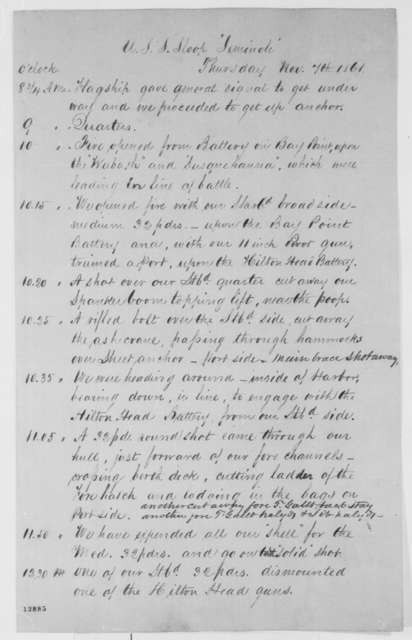 U.S.S. Sloop "Seminole"
O'clock Thursday Nov. 7th 1861
8 3/4 A.M. Flagship gave general signal to get under
way and we proceeded to get up anchor.
9 " Quarters.
10 " Fire opened from Battery on Bay Point, upon
the "Wabash" and "Susquehanna", which were
leading in line of battle.
10.15 " We opened fire with our Starbd broad side-
medium 32 pdrs. - upon the Bay Point
Battery and, with our 11 inch Pivot gun,
trained a Port, upon the Hilton Head Battery.
10.20 " A shot over our Stbd. quarter cut away our
Spanker boom topping lift, near the poop.
10.25 " A rifled bolt over the Stbd. side, cut away
the ash crane, passing through hammocks
over Sheet anchor - Port side - Main brace shot away
10.35 " We were heading around - inside of Harbor,
bearing down, in line, to engage with the
Hilton Head Battery, from our Stbd side.
11.05 " A 32 pdr. round shot came through our
hull, just forward of our fore channels -
crossing birth deck, cutting ladder of the
Fore hatch and lodging in the bags on
another cut away fore T. Gallt back stay
Port side. another fore T. Gallt halyds
11.50 " We have expended all our "shell" for the
Med. 32 pdrs. and go on with "solid" shot.
12.30 PM One of our Stbd. 32 pdrs. dismounted
one of the Hilton Head guns.
12885